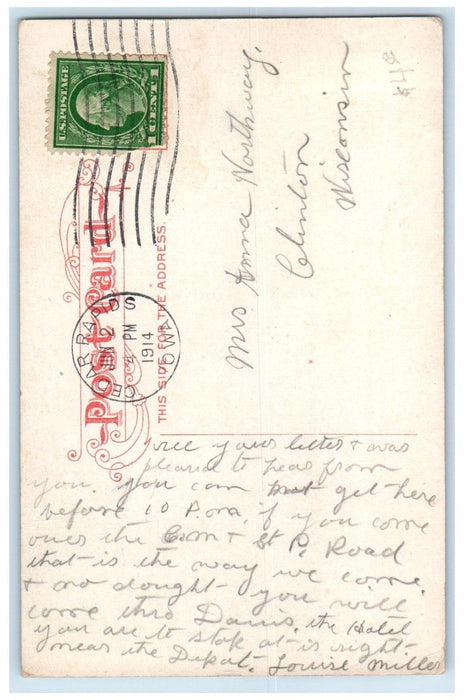 U.S. POSTAGE
1 CENT 1
Post Card
THIS SIDE FOR THE ADDRESS.
CEDAR RAPIDS
JUN 2
4 PM
1914
IOWA
$4
Mrs Anna Northway,
Clinton
Wisconsin
rec your letter + was
pleased to hear from
you. you can not get here
before 10 P.m, if you come
over the C.m + St P. Road
that is the way we come
+ no dought you will
come thro Davis, the Hotel
you are to stop at is right
near the Depot. Louise Miller